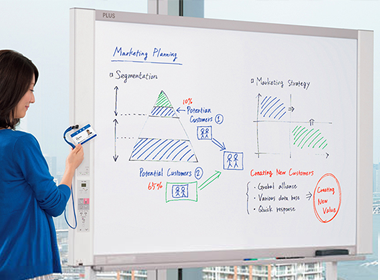 PLUS
Marketing Planning
Segmentation
10%
Potential
Customers ①
Potential Customers ②
65%
Marketing Strategy
Creating New Customers
- Global alliance
- Various data base
- Quick response
Creating
New
Value